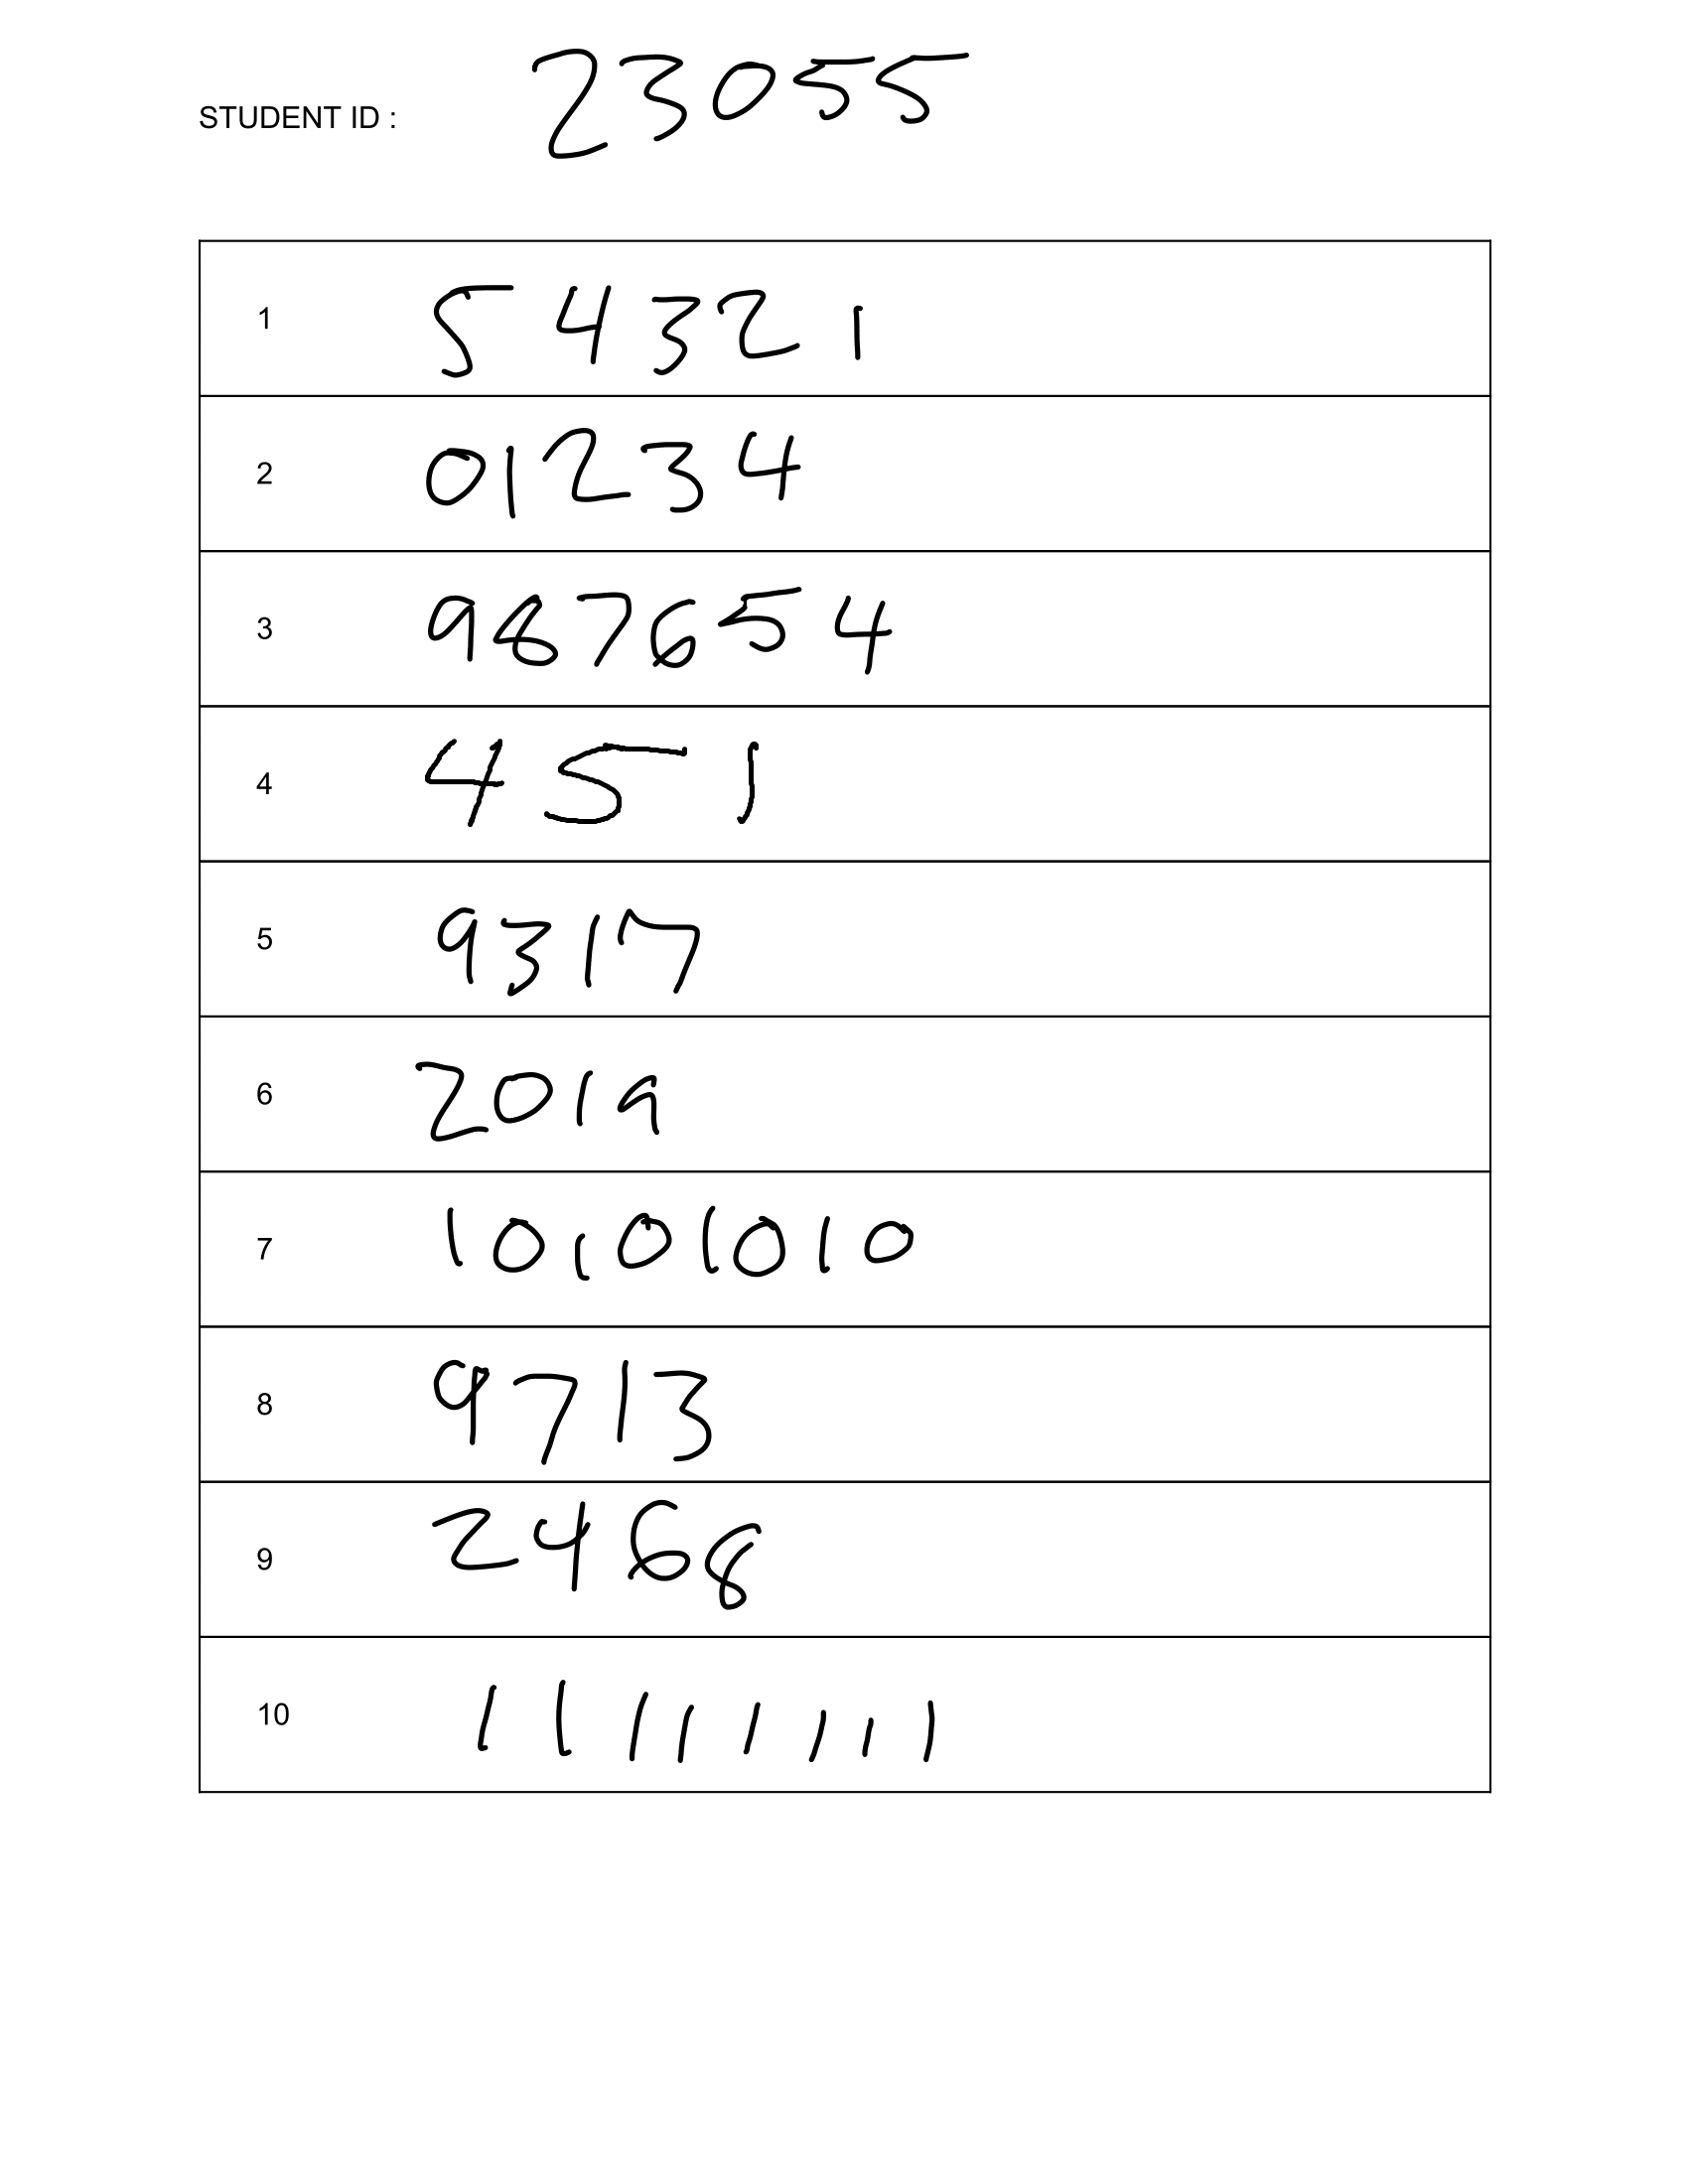 STUDENT ID : 23055
1 54321
2 01234
3 987654
4 451
5 9317
6 2019
7 10101010
8 9713
9 2468
10 11111111